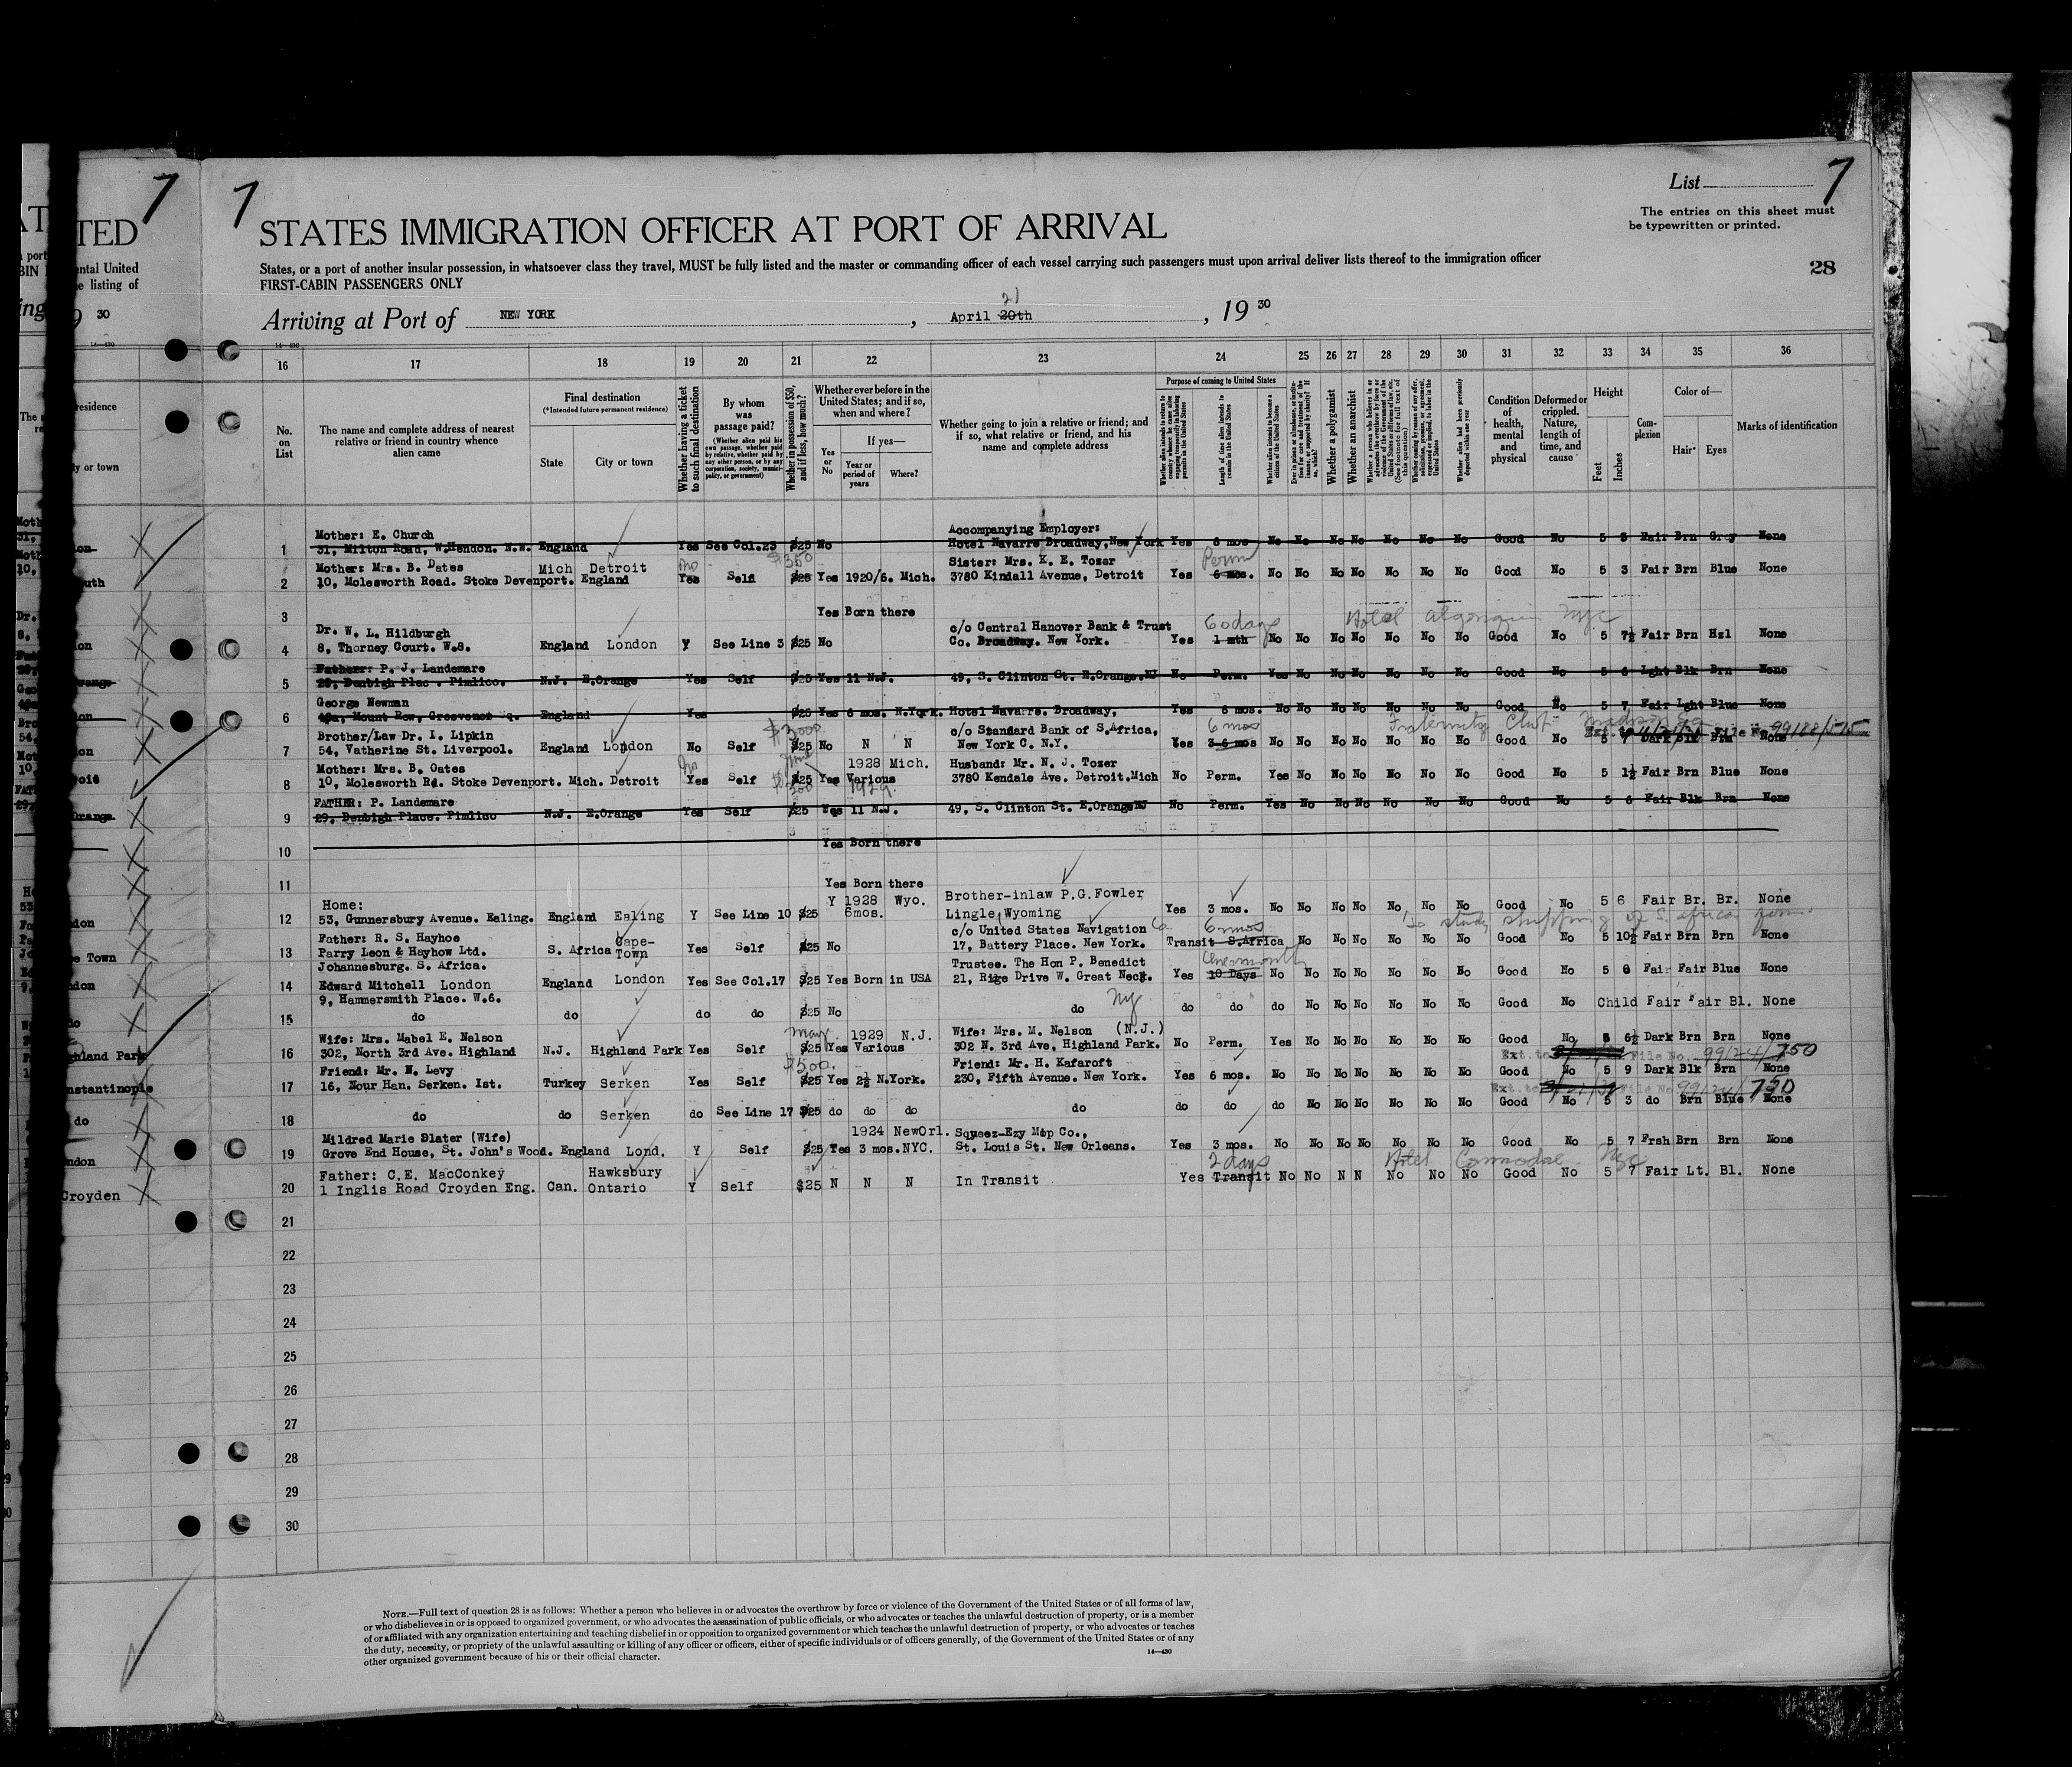 7
7
List 7
TED
STATES IMMIGRATION OFFICER AT PORT OF ARRIVAL
The entries on this sheet must
be typewritten or printed.
ental United
listing of
States, or a port of another insular possession, in whatsoever class they travel, MUST be fully listed and the master or commanding officer of each vessel carrying such passengers must upon arrival deliver lists thereof to the immigration officer
FIRST-CABIN PASSENGERS ONLY
28
30
21
Arriving at Port of NEW YORK, April 20th, 19 30
14—430
16 17 18 19 20 21 22 23 24 25 26 27 28 29 30 31 32 33 34 35 36
No. on List
The name and complete address of nearest relative or friend in country whence alien came
Final destination
(*Intended future permanent residence)
State
City or town
Whether having a ticket to such final destination
By whom was passage paid?
(Whether alien paid his own passage, whether paid by relative, whether paid by any other person, or by any corporation, society, municipality, or government)
Whether in possession of $50, and if less, how much?
Whether ever before in the United States; and if so, when and where?
Yes or No
If yes—
Year or period of years
Where?
Whether going to join a relative or friend; and if so, what relative or friend, and his name and complete address
Purpose of coming to United States
Length of time alien intends to remain in the United States
Whether alien intends to become a citizen of the United States
Whether a polygamist
Whether an anarchist
Condition of health, mental and physical
Deformed or crippled. Nature, length of time, and cause
Height
Feet
Inches
Complexion
Color of—
Hair
Eyes
Marks of identification
Mother: E. Church Accompanying Employer:
1 31, Milton Road, W.Hendon. N.W. England Yes See Col.23 $25 No Hotel Navarre Broadway, New York Yes 6 mos No No No No No No No Good No 5 3 Fair Brn Grey None
Mother: Mrs. B. Dates Mich Detroit $350 Sister: Mrs. K. E. Tozer Perm
2 10, Molesworth Road. Stoke Devenport. England Yes Self $25 Yes 1920/6. Mich. 3780 Kindall Avenue, Detroit Yes 6 mos. No No No No No No No Good No 5 3 Fair Brn Blue None
3 Yes Born there
Hotel Algonquin NYC
Dr. W. L. Hildburgh c/o Central Hanover Bank & Trust 60 days
4 8, Thorney Court. W.8. England London Y See Line 3 $25 No Co. Broadway. New York. Yes 1 mth No No No No No No No Good No 5 7½ Fair Brn Hzl None
Father: P. J. Landemare
5 29, Denbigh Plac. Pimlico. N.J. E.Orange Yes Self $25 Yes 11 N.J. 49, S. Clinton St. E.Orange.NJ No Perm. Yes No No No No No No Good No 5 6 Lght Blk Brn None
George Newman
6 49a, Mount Row, Grosvenor England Yes $25 Yes 6 mos. N.York. Hotel Navarre. Broadway, Yes 6 mos. No No No No No No No Good No 5 7 Fair Lght Blue None
Brother/Law Dr. I. Lipkin $3000 c/o Standard Bank of S.Africa, 6 mos Fraternity Club
7 54, Vatherine St. Liverpool. England London No Self $25 No N N New York C. N.Y. Yes 3-6 mos No No No No No No No Good No 5 Dark Blk Brn None
File No 99188/575
Mother: Mrs. B. Oates 1928 Mich. Husband: Mr. N. J. Tozer
8 10, Molesworth Rd. Stoke Devenport. Mich. Detroit Yes Self $25 Yes Various 3780 Kendale Ave. Detroit.Mich No Perm. Yes No No No No No No Good No 5 1½ Fair Brn Blue None
1929
FATHER: P. Landemare
9 29. Denbigh Place. Pimlico N.J. E.Orange Yes Self $25 Yes 11 N.J. 49, S. Clinton St. E.OrangeNJ No Perm. Yes No No No No No No Good No 5 6 Fair Blk Brn None
10 Yes Born there
11 Yes Born there
Home: Y 1928 Wyo. Brother-inlaw P.G.Fowler
12 53, Gunnersbury Avenue. Ealing. England Ealing Y See Line 10 $25 6mos. Lingle Wyoming Yes 3 mos. No No No No No No No Good No 5 6 Fair Br. Br. None
to study shipping of S. Africa
Father: R. S. Hayhoe c/o United States Navigation Co 6 mos
13 Parry Leon & Hayhow Ltd. S. Africa Cape-Town Yes Self $25 No 17, Battery Place. New York. Transit S.Africa No No No No No No Good No 5 10½ Fair Brn Brn None
Johannesburg. S. Africa. Trustee. The Hon P. Benedict One month
14 Edward Mitchell London England London Yes See Col.17 $25 Yes Born in USA 21, Rige Drive W. Great Neck. Yes 10 Days No No No No No No No Good No 5 8 Fair Fair Blue None
9, Hammersmith Place. W.6. NY
15 do do do do $25 No do do do do No No No No No No Good No Child Fair Fair Bl. None
Wife: Mrs. Mabel E. Nelson 1929 N.J. Wife: Mrs. M. Nelson (N.J.)
16 302, North 3rd Ave. Highland N.J. Highland Park Yes Self $25 Yes Various 302 N. 3rd Ave, Highland Park. No Perm. Yes No No No No No No Good No 5 6½ Dark Brn Brn None
Ext. to File No. 99124/750
Friend: Mr. N. Levy $500. Friend: Mr. H. Kafaroft
17 16, Nour Han. Serken. Ist. Turkey Serken Yes Self $25 Yes 2½ N.York. 230, Fifth Avenue. New York. Yes 6 mos. No No No No No No No Good No 5 9 Dark Blk Brn None
Ext. to File No 99124/750
18 do do Serken do See Line 17 $25 do do do do do do do No No No No No No Good No 5 3 do Brn Blue None
Mildred Marie Slater (Wife) 1924 NewOrl. Sqneez-Ezy Mop Co.,
19 Grove End House, St. John's Wood. England Lond. Y Self $25 Yes 3 mos. NYC. St. Louis St. New Orleans. Yes 3 mos. No No No No No No No Good No 5 7 Frsh Brn Brn None
Father: C.E. MacConkey Hawksbury 2 days Hotel Commodore NYC
20 1 Inglis Road Croyden Eng. Can. Ontario Y Self $25 N N N In Transit Yes Transit No No N N No No No Good No 5 7 Fair Lt. Bl. None
21
22
23
24
25
26
27
28
29
30
NOTE.—Full text of question 28 is as follows: Whether a person who believes in or advocates the overthrow by force or violence of the Government of the United States or of all forms of law,
or who disbelieves in or is opposed to organized government, or who advocates the assassination of public officials, or who advocates or teaches the unlawful destruction of property, or is a member
of or affiliated with any organization entertaining and teaching disbelief in or opposition to organized government or which teaches the unlawful destruction of property, or who advocates or teaches
the duty, necessity, or propriety of the unlawful assaulting or killing of any officer or officers, either of specific individuals or of officers generally, of the Government of the United States or of any
other organized government because of his or their official character.
14—430